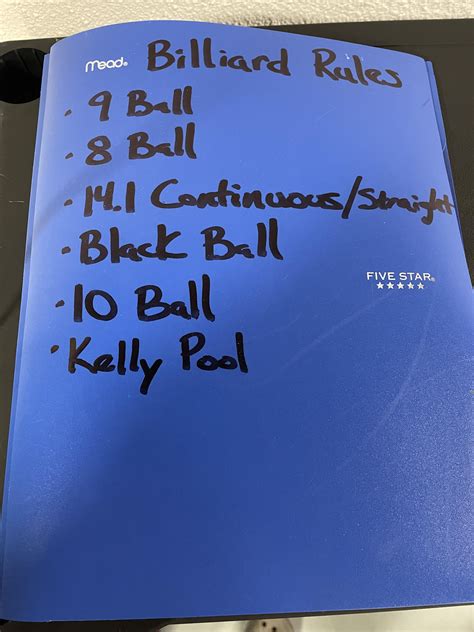 Mead® Billiard Rules
• 9 Ball
• 8 Ball
• 14.1 Continuous/Straight
• Black Ball
FIVE STAR®
★★★★★
• 10 Ball
• Kelly Pool